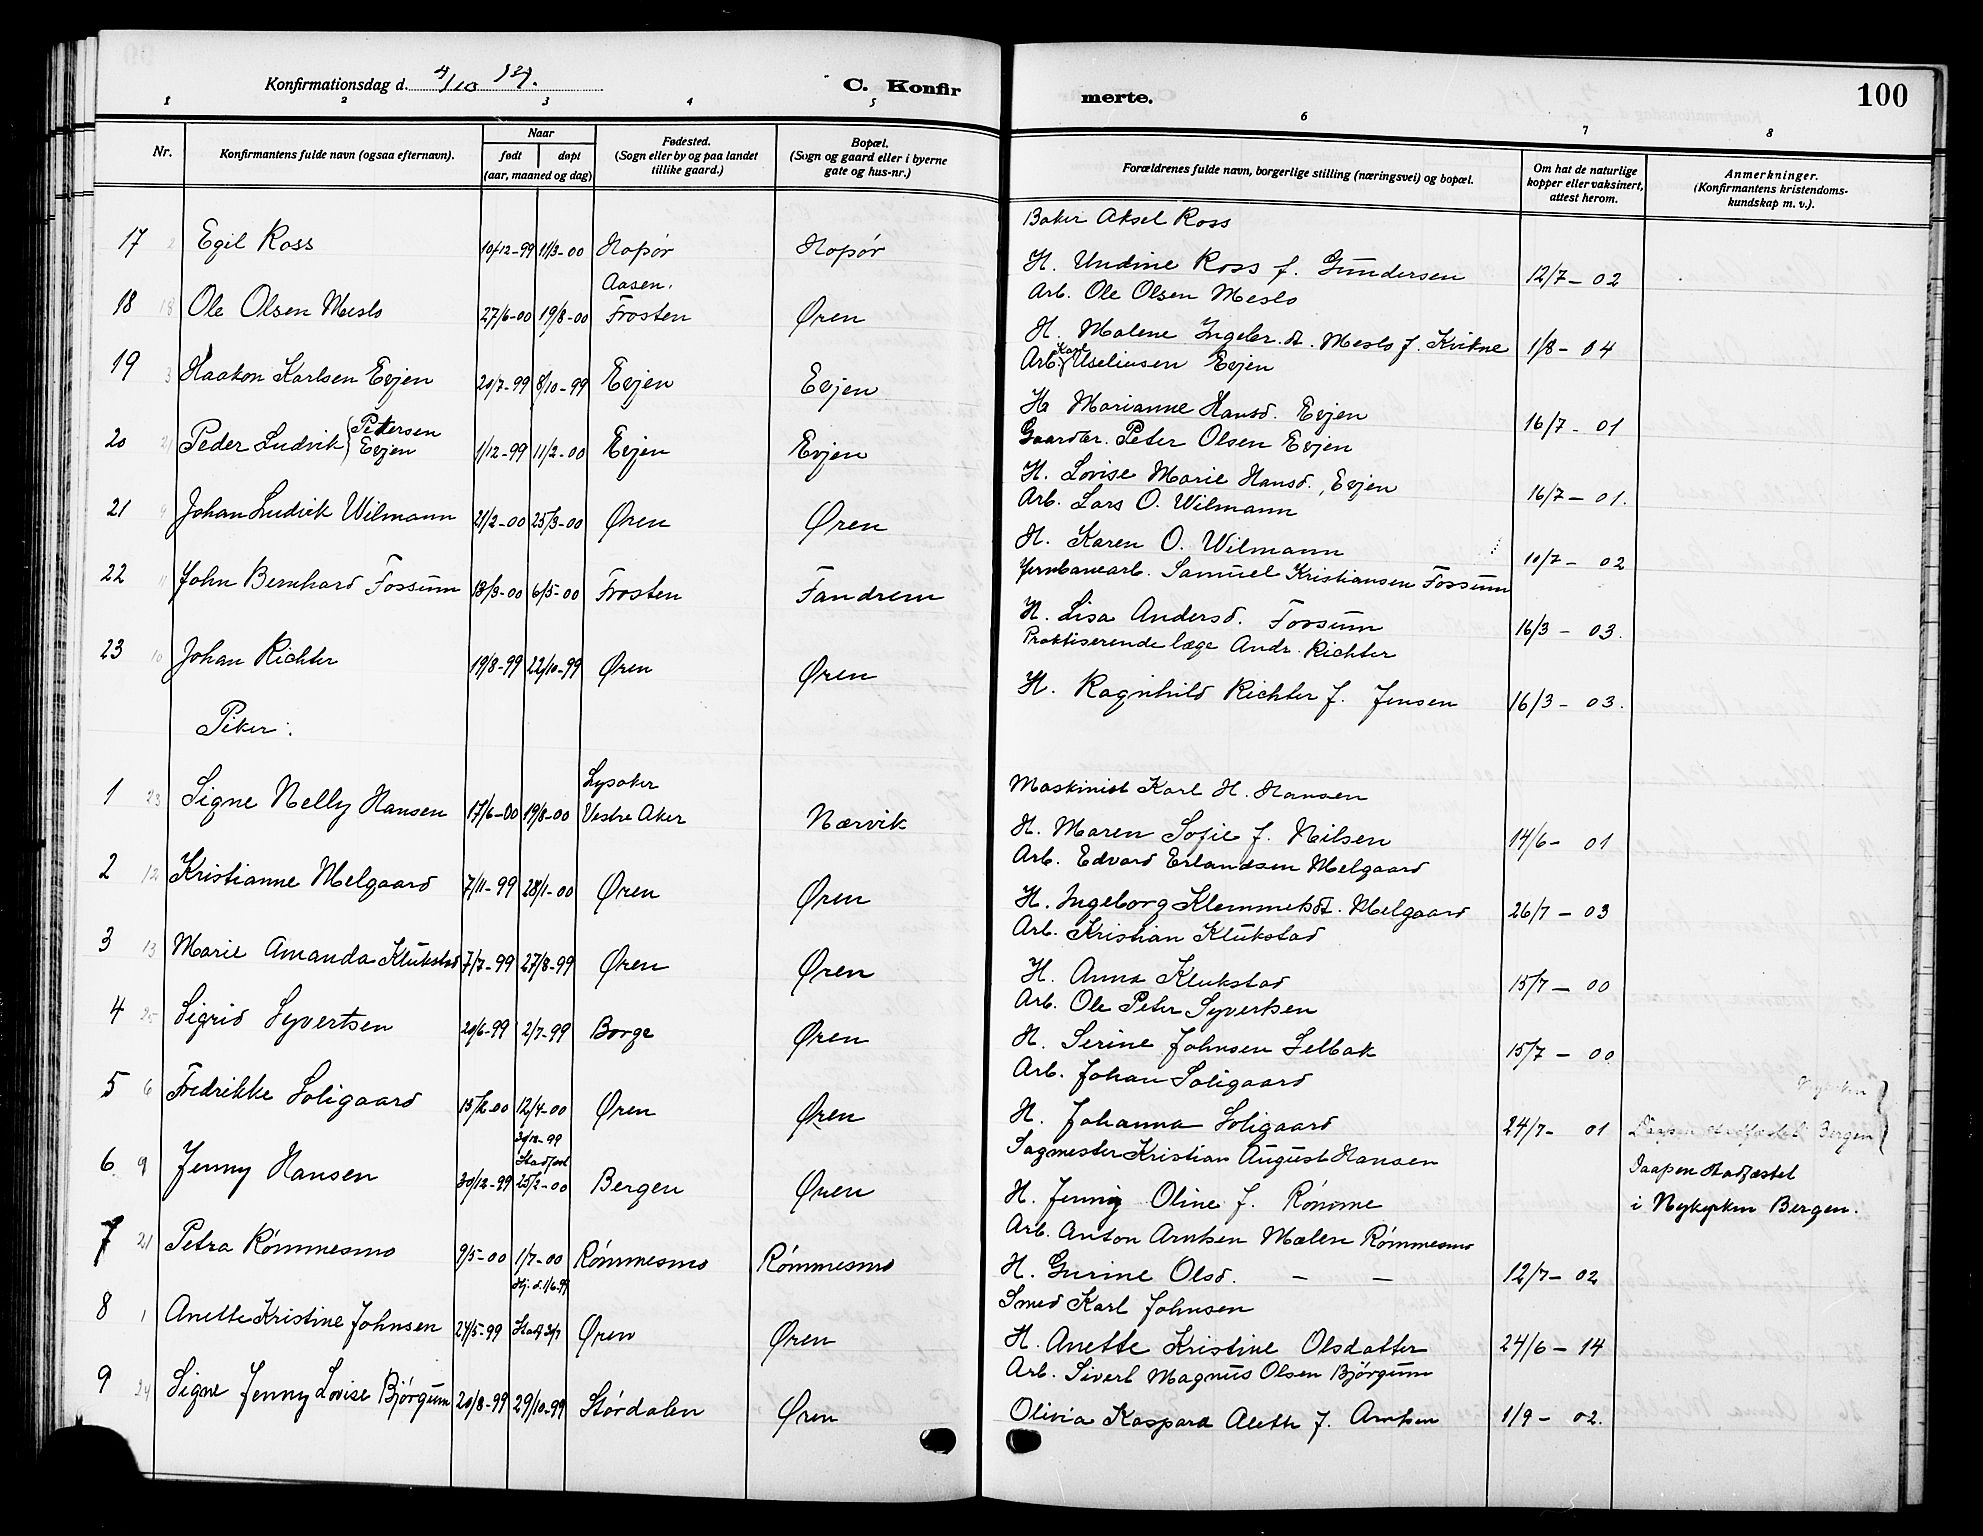 Konfirmationsdag d. 4/10 14.
C. Konfirmerte.
100
1 2 3 4 5 6 7 8
Nr.
Konfirmantens fulde navn (ogsaa efternavn).
Naar
født
døpt
(aar, maaned og dag)
Fødested.
(Sogn eller by og paa landet
tillike gaard.)
Bopæl.
(Sogn og gaard eller i byerne
gate og hus-nr.)
Forældrenes fulde navn, borgerlige stilling (næringsvei) og bopæl.
Om hat de naturlige
kopper eller vaksinert,
attest herom.
Anmerkninger.
(Konfirmantens kristendoms-
kundskap m. v.).
Baker Aksel Ross
17 2 Egil Ross 10/12-99 11/3-00 Hopør Hopør H. Undine Ross f. Gundersen 12/7-02
Aasen. Arb. Ole Olsen Meslo
18 18 Ole Olsen Meslo 27/6-00 19/8-00 Frosten Øren H. Malene Ingebr.dt. Meslo f. Kvikne 1/8-04
Arb. Karl Useliusen Evjen
19 3 Haakon Karlsen Evjen 20/7-99 8/10-99 Evjen Evjen H. Marianne Hansd. Evjen 16/7-01
Petersen Gaardbr. Peter Olsen Evjen
20 21 Peder Ludvik Evjen 1/12-99 11/2-00 Evjen Evjen H. Lovise Marie Hansd. Evjen 16/7-01.
Arb. Lars O. Wilmann
21 9 Johan Ludvik Wilmann 21/2-00 25/3-00 Øren Øren H. Karen O. Wilmann 10/7-02
Jernbanearb. Samuel Kristiansen Fossum
22 11 John Bernhard Fossum 18/3-00 6/5-00 Frosten Fandrem H. Lisa Andersd. Fossum 16/3-03.
Praktiserende læge Andr. Richter
23 10 Johan Richter 19/8-99 22/10-99 Øren Øren H. Ragnhild Richter f. Jensen 16/3-03.
Piker:
Lysaker Maskinist Karl H. Hansen
1 23 Signe Nelly Hansen 17/6-00 19/8-00 Vestre Aker Nærvik H. Maren Sofie f. Nilsen 14/6-01
Arb. Edvard Erlandsen Melgaard
2 12 Kristianne Melgaard 7/11-99 28/1-00 Øren Øren H. Ingeborg Klemmetsdt. Melgaard 26/7-03
Arb. Kristian Klukstad
3 13 Marie Amanda Klukstad 7/7-99 27/8-99 Øren Øren H. Anna Klukstad 15/7-00
Arb. Ole Peter Syvertsen
4 25 Sigrid Syvertsen 20/6-99 2/7-99 Borge Øren H. Serine Johnsen Selbak 15/7-00
Arb. Johan Soligaard
5 6 Fredrikke Soligaard 15/2-00 12/4-00 Øren Øren H. Johanna Soligaard 24/7-01 Nykirken
Daapen stadfæstet i Bergen
30/12-99 Stadfæst Sagmester Kristian August Hansen
6 9 Jenny Hansen 30/12-99 25/2-00 Bergen Øren H. Jenny Oline f. Rønome Daapen stadfæstet
i Nykyrken Bergen.
Arb. Anton Arntsen Mælen Rømmesmo
7 21 Petra Rømmesmo 9/5-00 1/7-00 Rømmesmo Rømmesmo H. Gurine Olsd. — — 12/7-02
Hj. d. 1/6-99 Smed Karl Johnsen
8 1 Anette Kristine Johnsen 24/5-99 Stadf 2/7 Øren Øren H. Anette Kristine Olsdatter 24/6-14
Arb. Sivert Magnus Olsen Bjørgum
9 24 Signe Jenny Lovise Bjørgum 20/8-99 29/10-99 Størdalen Øren Olivia Kaspara Aleth f. Arntsen 1/9-02.